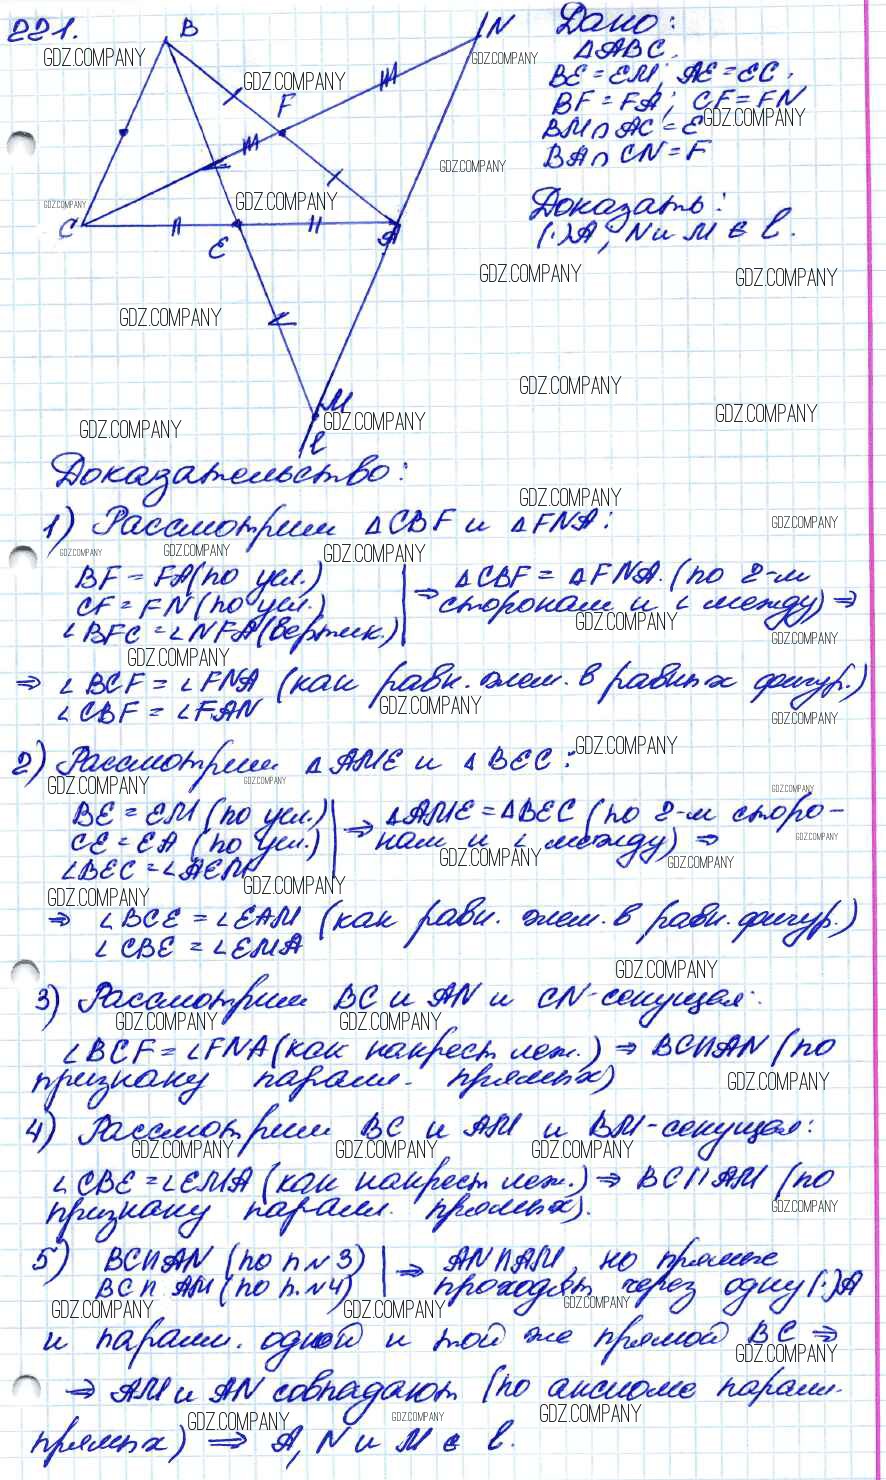 221.
B
N
F
C
E
A
M
l
Дано:
△ABC.
BE = EM; AE = EC.
BF = FA; CF = FN
BM ∩ AC = E
BA ∩ CN = F
Доказать:
(·)A, N и M ∈ l.
Доказательство:
1) Рассмотрим △CBF и △FNA:
BF = FA (по усл.)
CF = FN (по усл.)
∠BFC = ∠NFA (вертик.)
⇒ △CBF = △FNA. (по 2-м
сторонам и ∠ между) ⇒
⇒ ∠BCF = ∠FNA (как равн. элем. в равных фигур.)
∠CBF = ∠FAN
2) Рассмотрим △AME и △BEC:
BE = EM (по усл.)
CE = EA (по усл.)
∠BEC = ∠AEM
⇒ △AME = △BEC (по 2-м сторо-
нам и ∠ между) ⇒
⇒ ∠BCE = ∠EAM (как равн. элем. в равн. фигур.)
∠CBE = ∠EMA
3) Рассмотрим BC и AN и CN-секущая:
∠BCF = ∠FNA (как накрест леж.) ⇒ BC || AN (по
признаку паралл. прямых)
4) Рассмотрим BC и AM и BM-секущая:
∠CBE = ∠EMA (как накрест леж.) ⇒ BC || AM (по
признаку паралл. прямых).
5) BC || AN (по п.№3)
BC || AM (по п.№4)
⇒ AN || AM, но прямые
проходят через одну (·)A
и паралл. одной и той же прямой BC ⇒
⇒ AM и AN совпадают (по аксиоме паралл.
прямых) ⇒ A, N и M ∈ l.
GDZ.COMPANY